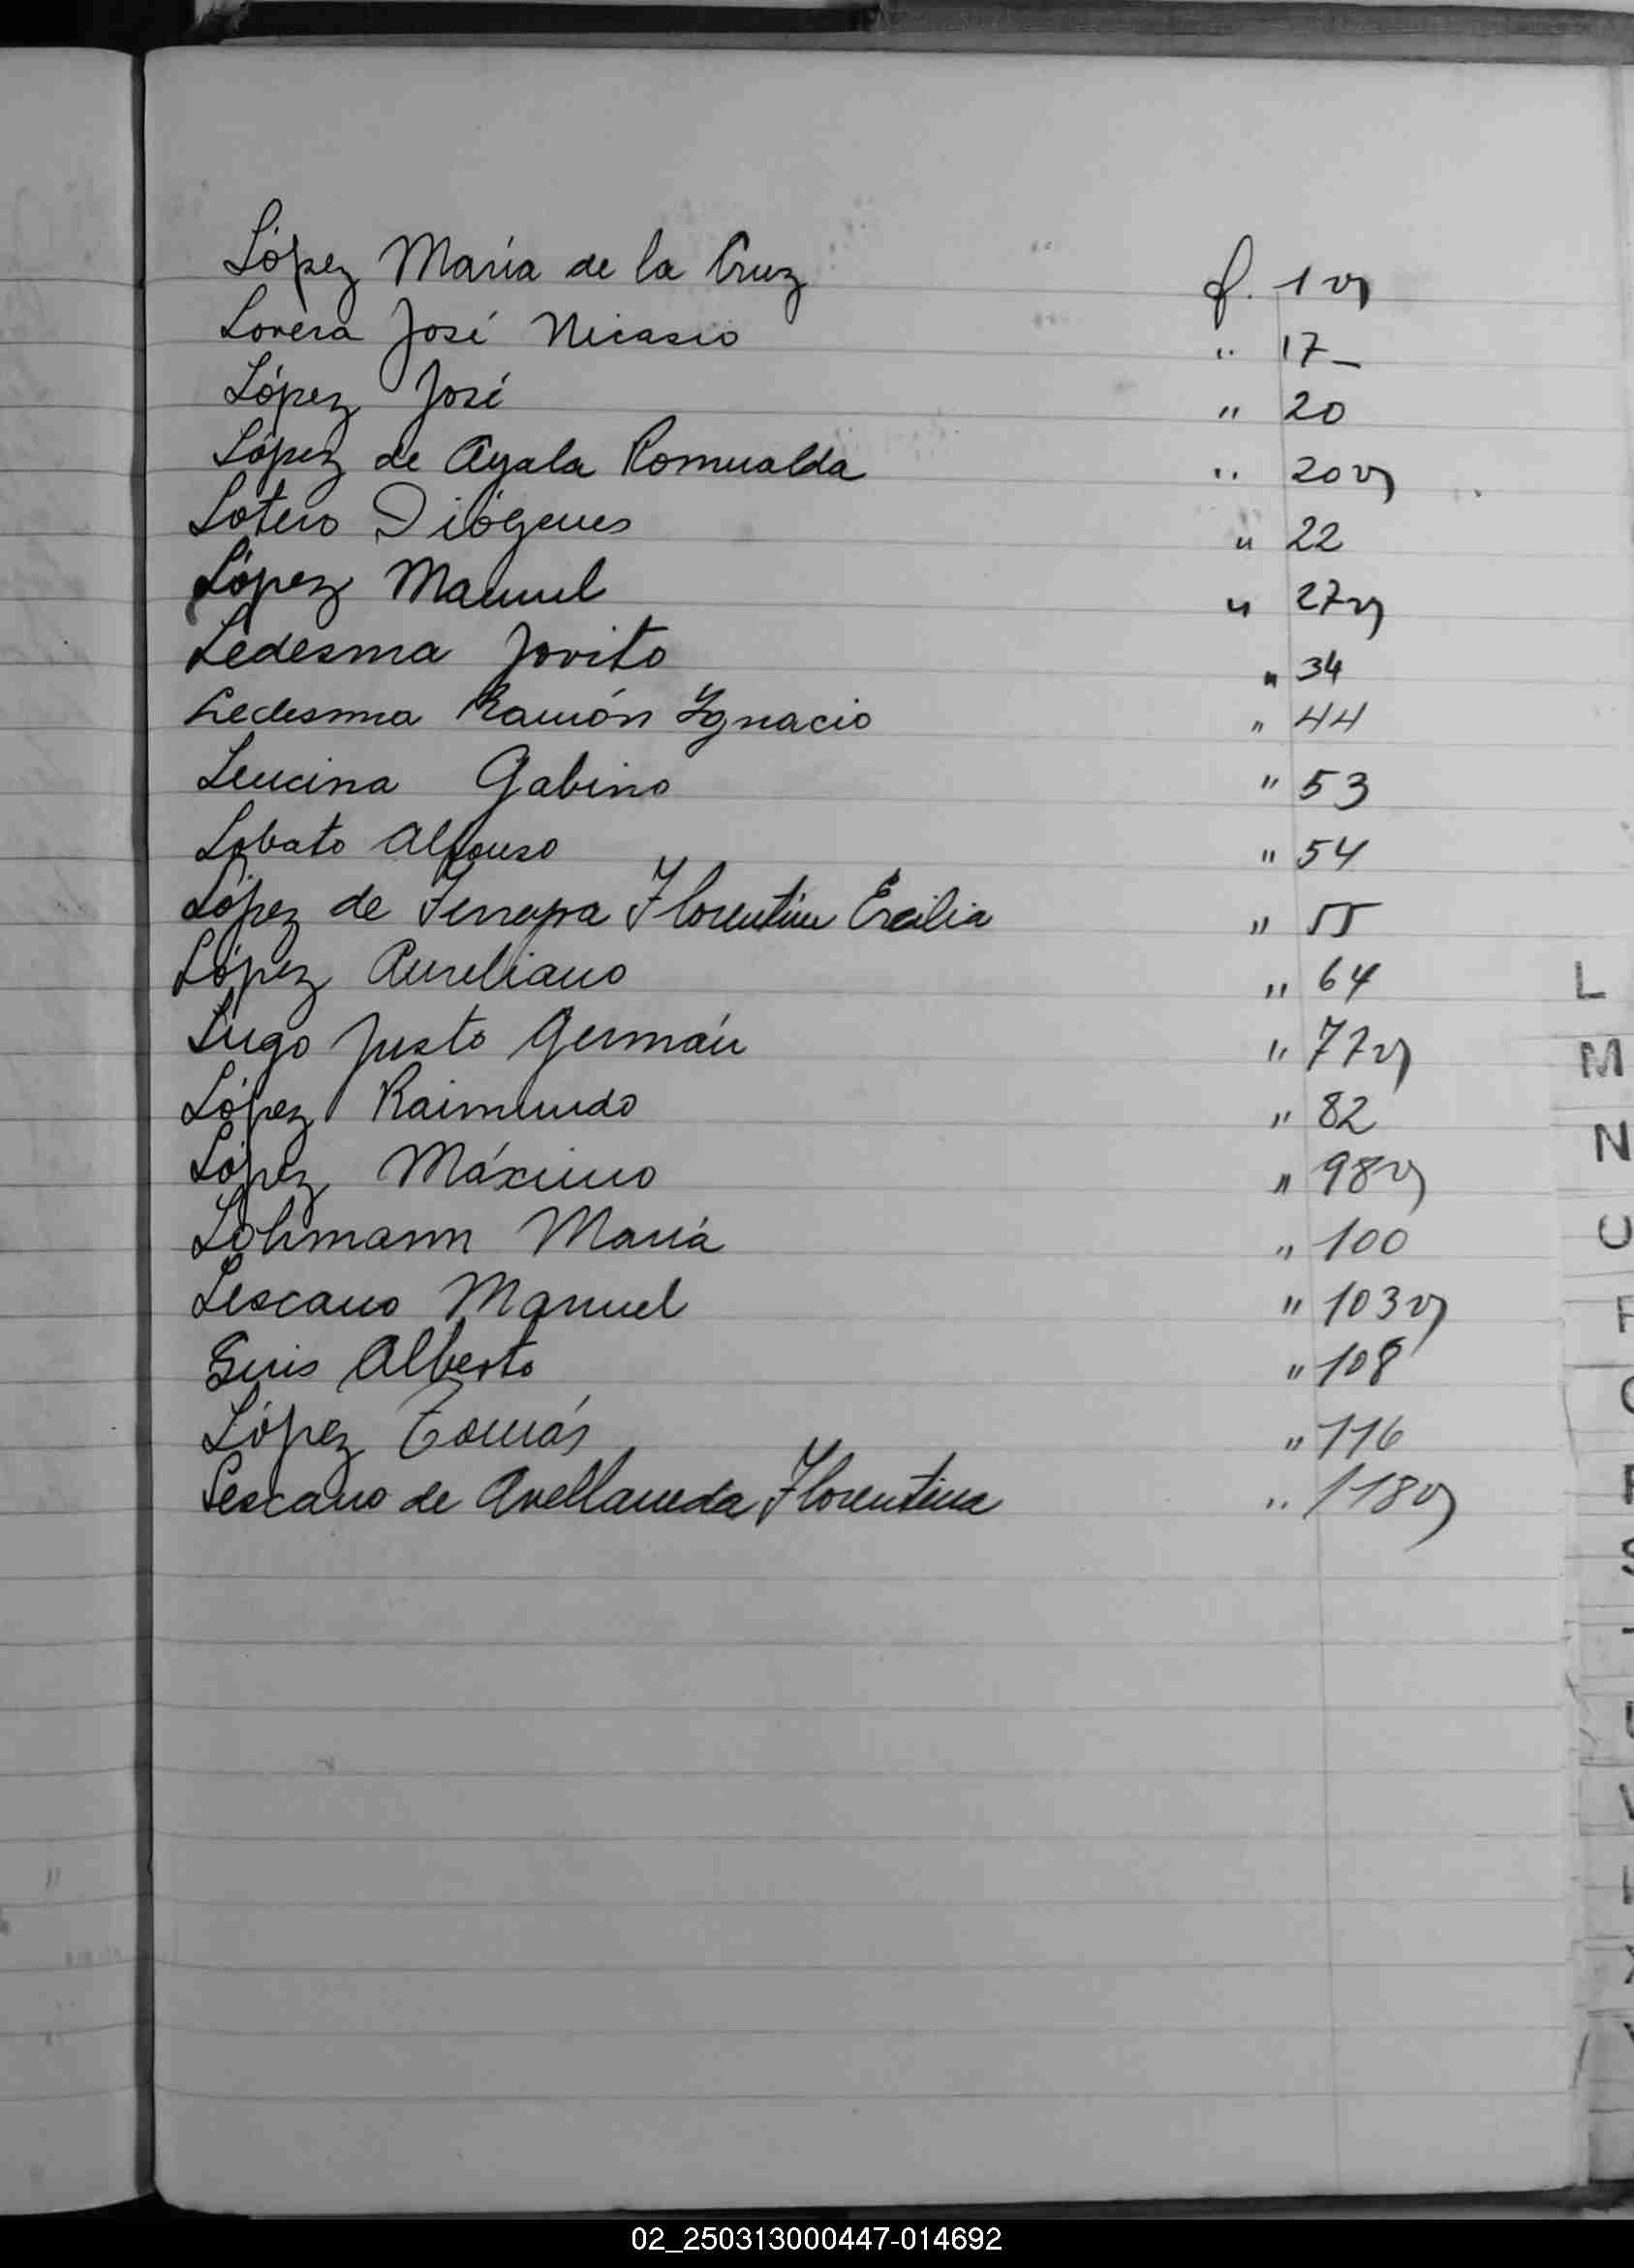 López María de la Cruz f. 1 v
Lovera José Nicasio " 17_
López José " 20
López de Ayala Romualda " 20 v
Lotero Diógenes " 22
López Manuel " 27 v
Ledesma Jovito " 34
Ledesma Ramón Ignacio " 44
Leucina Gabino " 53
Lobato Alfonso " 54
López de Florentina Ercilia " 55
López Aureliano " 64
Lugo Justo Germán " 77 v
López Raimundo " 82
López Máximo " 98 v
Lohmann María " 100
Lescano Manuel " 103 v
Alberto " 108
López Tomás " 116
Lescano de Avellaneda Florentina " 118 v
L
M
N
02_250313000447-014692